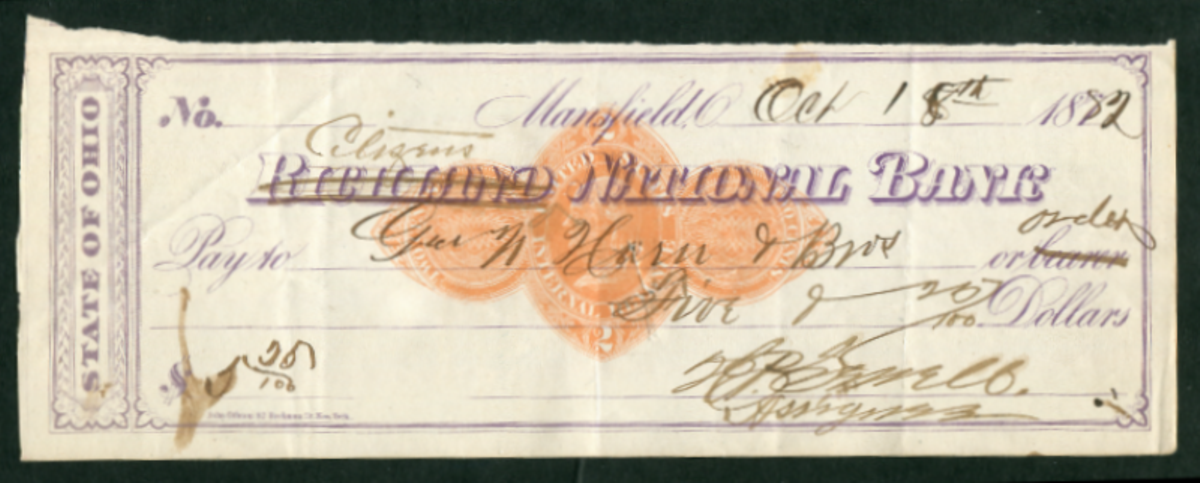 STATE OF OHIO
No. Mansfield, O Oct 18th 1882
Citizens
RICHLAND NATIONAL BANK
Pay to Geo N Horn & Bros or bearer order
Five & 20/100 Dollars
$ 5 20/100
Assignee
2
2